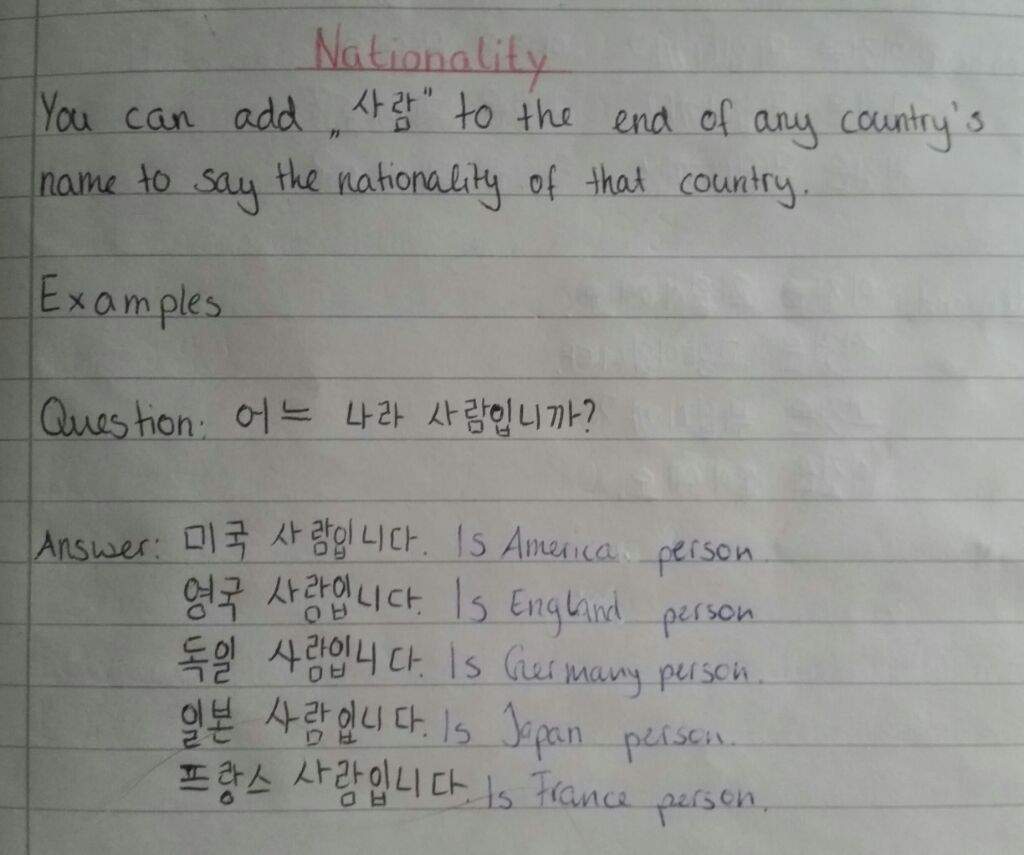 Nationality
You can add „사람" to the end of any country's
name to say the nationality of that country.
Examples
Question: 어느 나라 사람입니까?
Answer: 미국 사람입니다. Is America person
영국 사람입니다. Is England person
독일 사람입니다. Is Germany person.
일본 사람입니다. Is Japan person.
프랑스 사람입니다. Is France person.